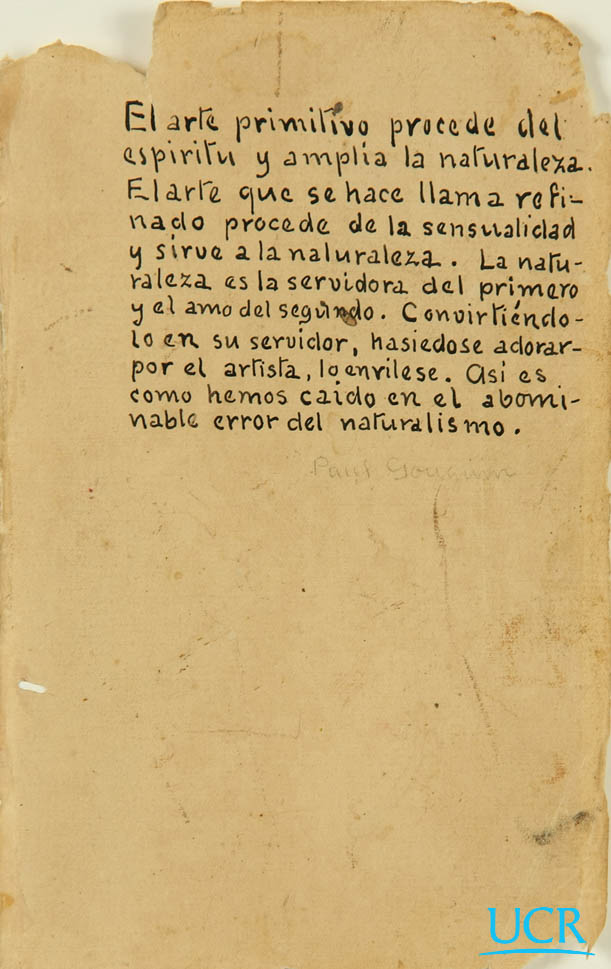 El arte primitivo procede del
espiritu y amplía la naturaleza.
El arte que se hace llama refi-
nado procede de la sensualidad
y sirve a la naluraleza. La natu-
raleza es la servidora del primero
y el amo del segundo. Convirtiéndo-
lo en su servidor, hasiedose adorar-
por el artista, lo envilese. Así es
como hemos caido en el abomi-
nable error del naturalismo.
Paul
UCR